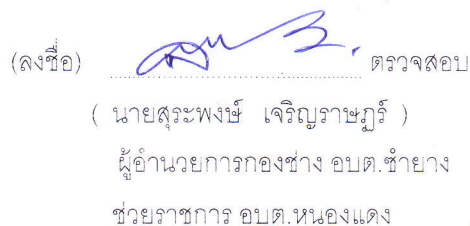 (ลงชื่อ) ตรวจสอบ
( นายสุระพงษ์ เจริญราษฎร์ )
ผู้อำนวยการกองช่าง อบต.ซำยาง
ช่วยราชการ อบต.หนองแดง